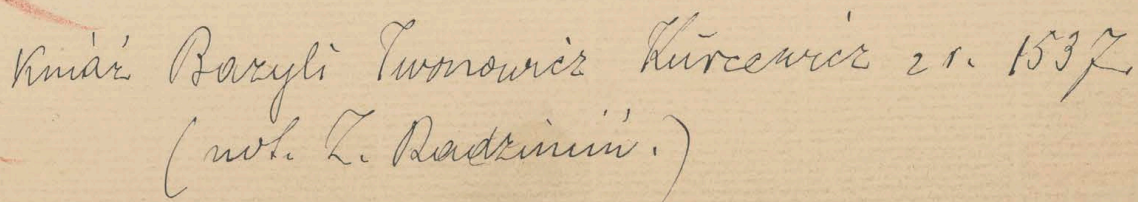 Kniaź Bazyli Iwonowicz Kurcewicz z r. 1537.
(not. Z. Radzimiń.)